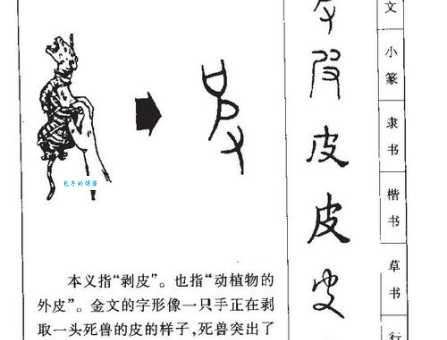 文
小篆
隶书
楷书
草书
行
皮
皮
本义指“剥皮”。也指“动植物的
外皮”。金文的字形像一只手正在剥
取一头死兽的皮的样子,死兽突出了